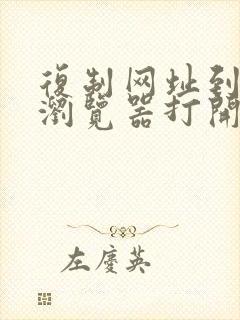 復制网址到
瀏覽器打開
左慶英